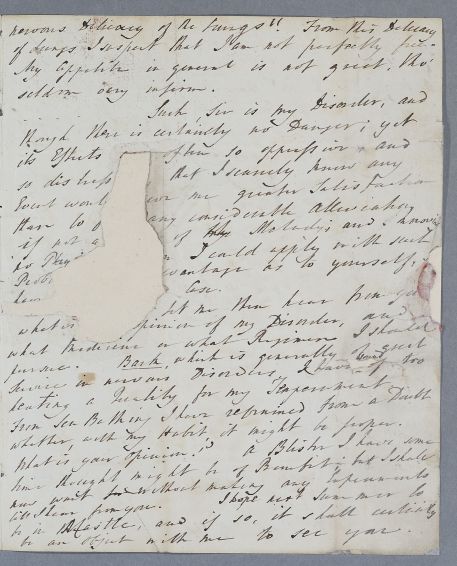 nervous Delicacy of the Lungs" From this Delicacy
of Lungs I suspect that I am not perfectly free.
My Appetite in general is not great, tho'
seldom very infirm.
Such Sir is my Disorder, and
though there is certainly no Danger; yet
its Effects often so oppressive, and
so distress that I scarcely know any
Event would me greater Satisfaction
than to any considerable Alleviation
if not a of my Malady; and I know
no Phy I could apply with such
Prob vantage as to yourself,
Case.
Let me then hear from you
what is opinion of my Disorder, and
what Medicine or what Regimen I should
pursue. Bark, which is generally of great
service in nervous Disorders, I have found of too
heating a Quality for my Temperament.
From Sea Bathing I have refrained from a Doubt
whether, with my Habit, it might be proper.
What is your opinion? A Blister I have some
time thought might be of Benefit; but I shall
now wait without making any Experiments
till I hear from you. I hope next Summer to
be in and if so, it shall certainly
be an Object with me to see you.